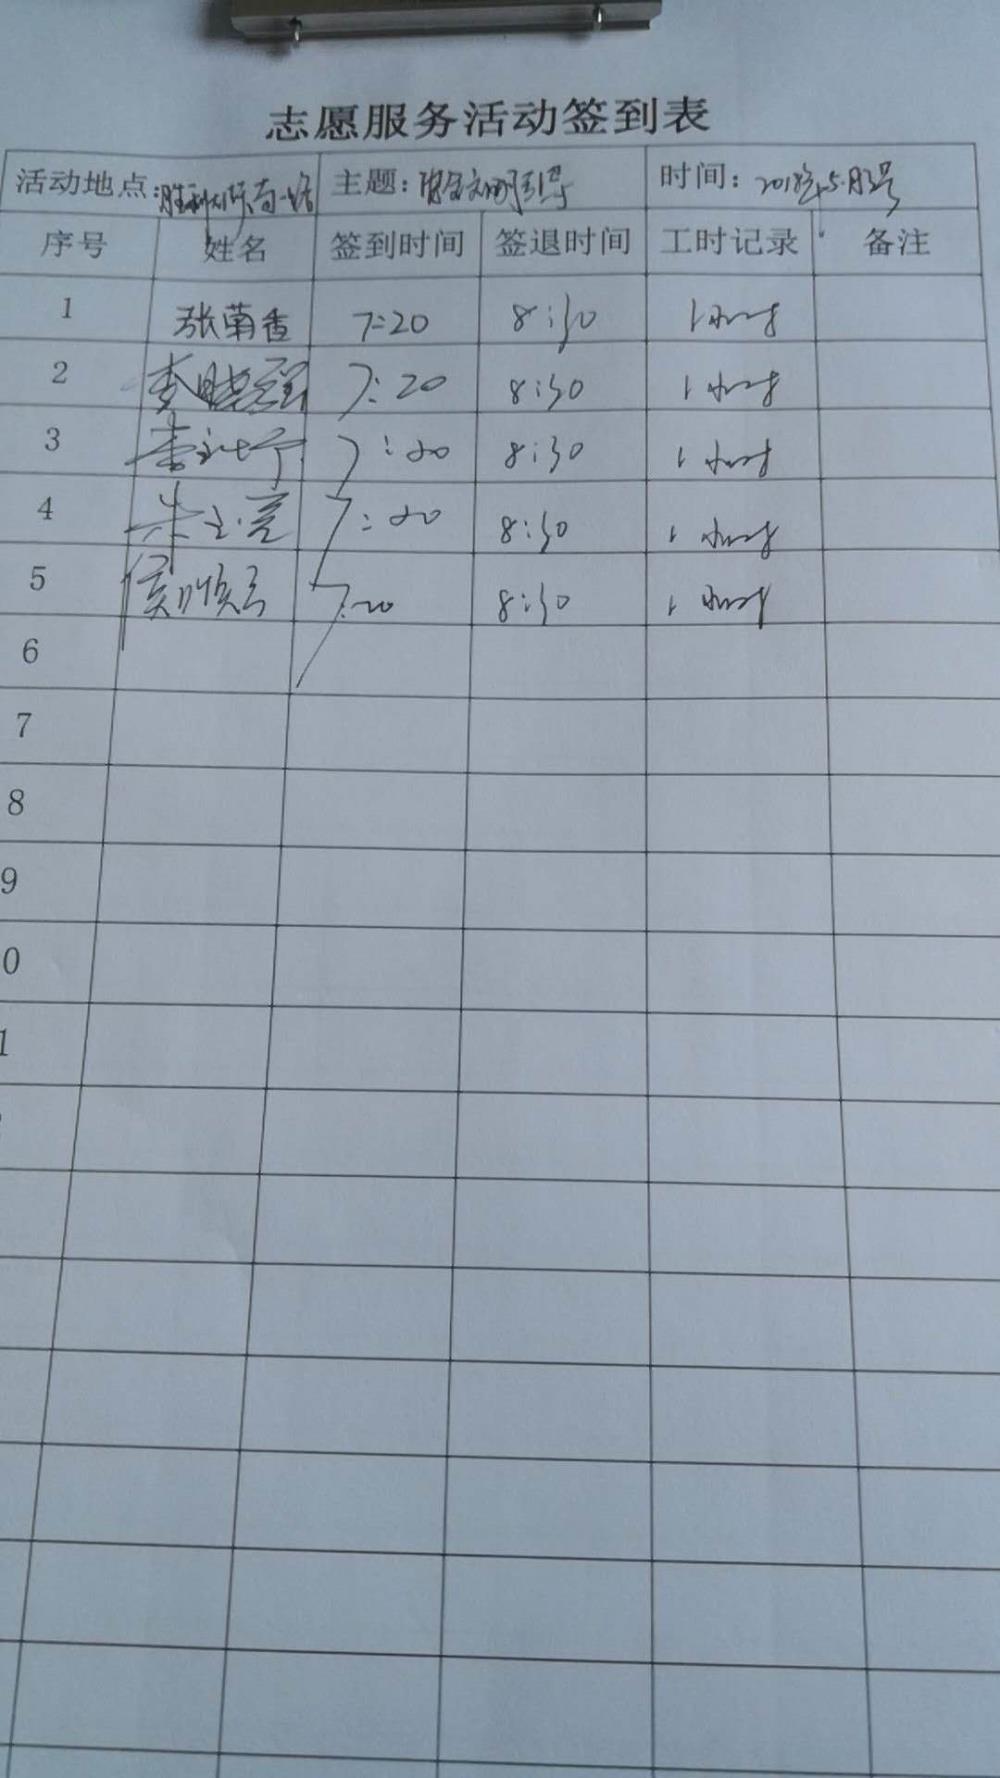 志愿服务活动签到表
活动地点: 主题: 时间: 2018年5月2号
序号 姓名 签到时间 签退时间 工时记录 备注
1 张菊香 7:20 8:30 1小时
2 李晓 7:20 8:30 1小时
3 李 7:20 8:30 1小时
4 朱玉亮 7:20 8:30 1小时
5 侯顺 7:20 8:30 1小时
6
7
8
9
0
1